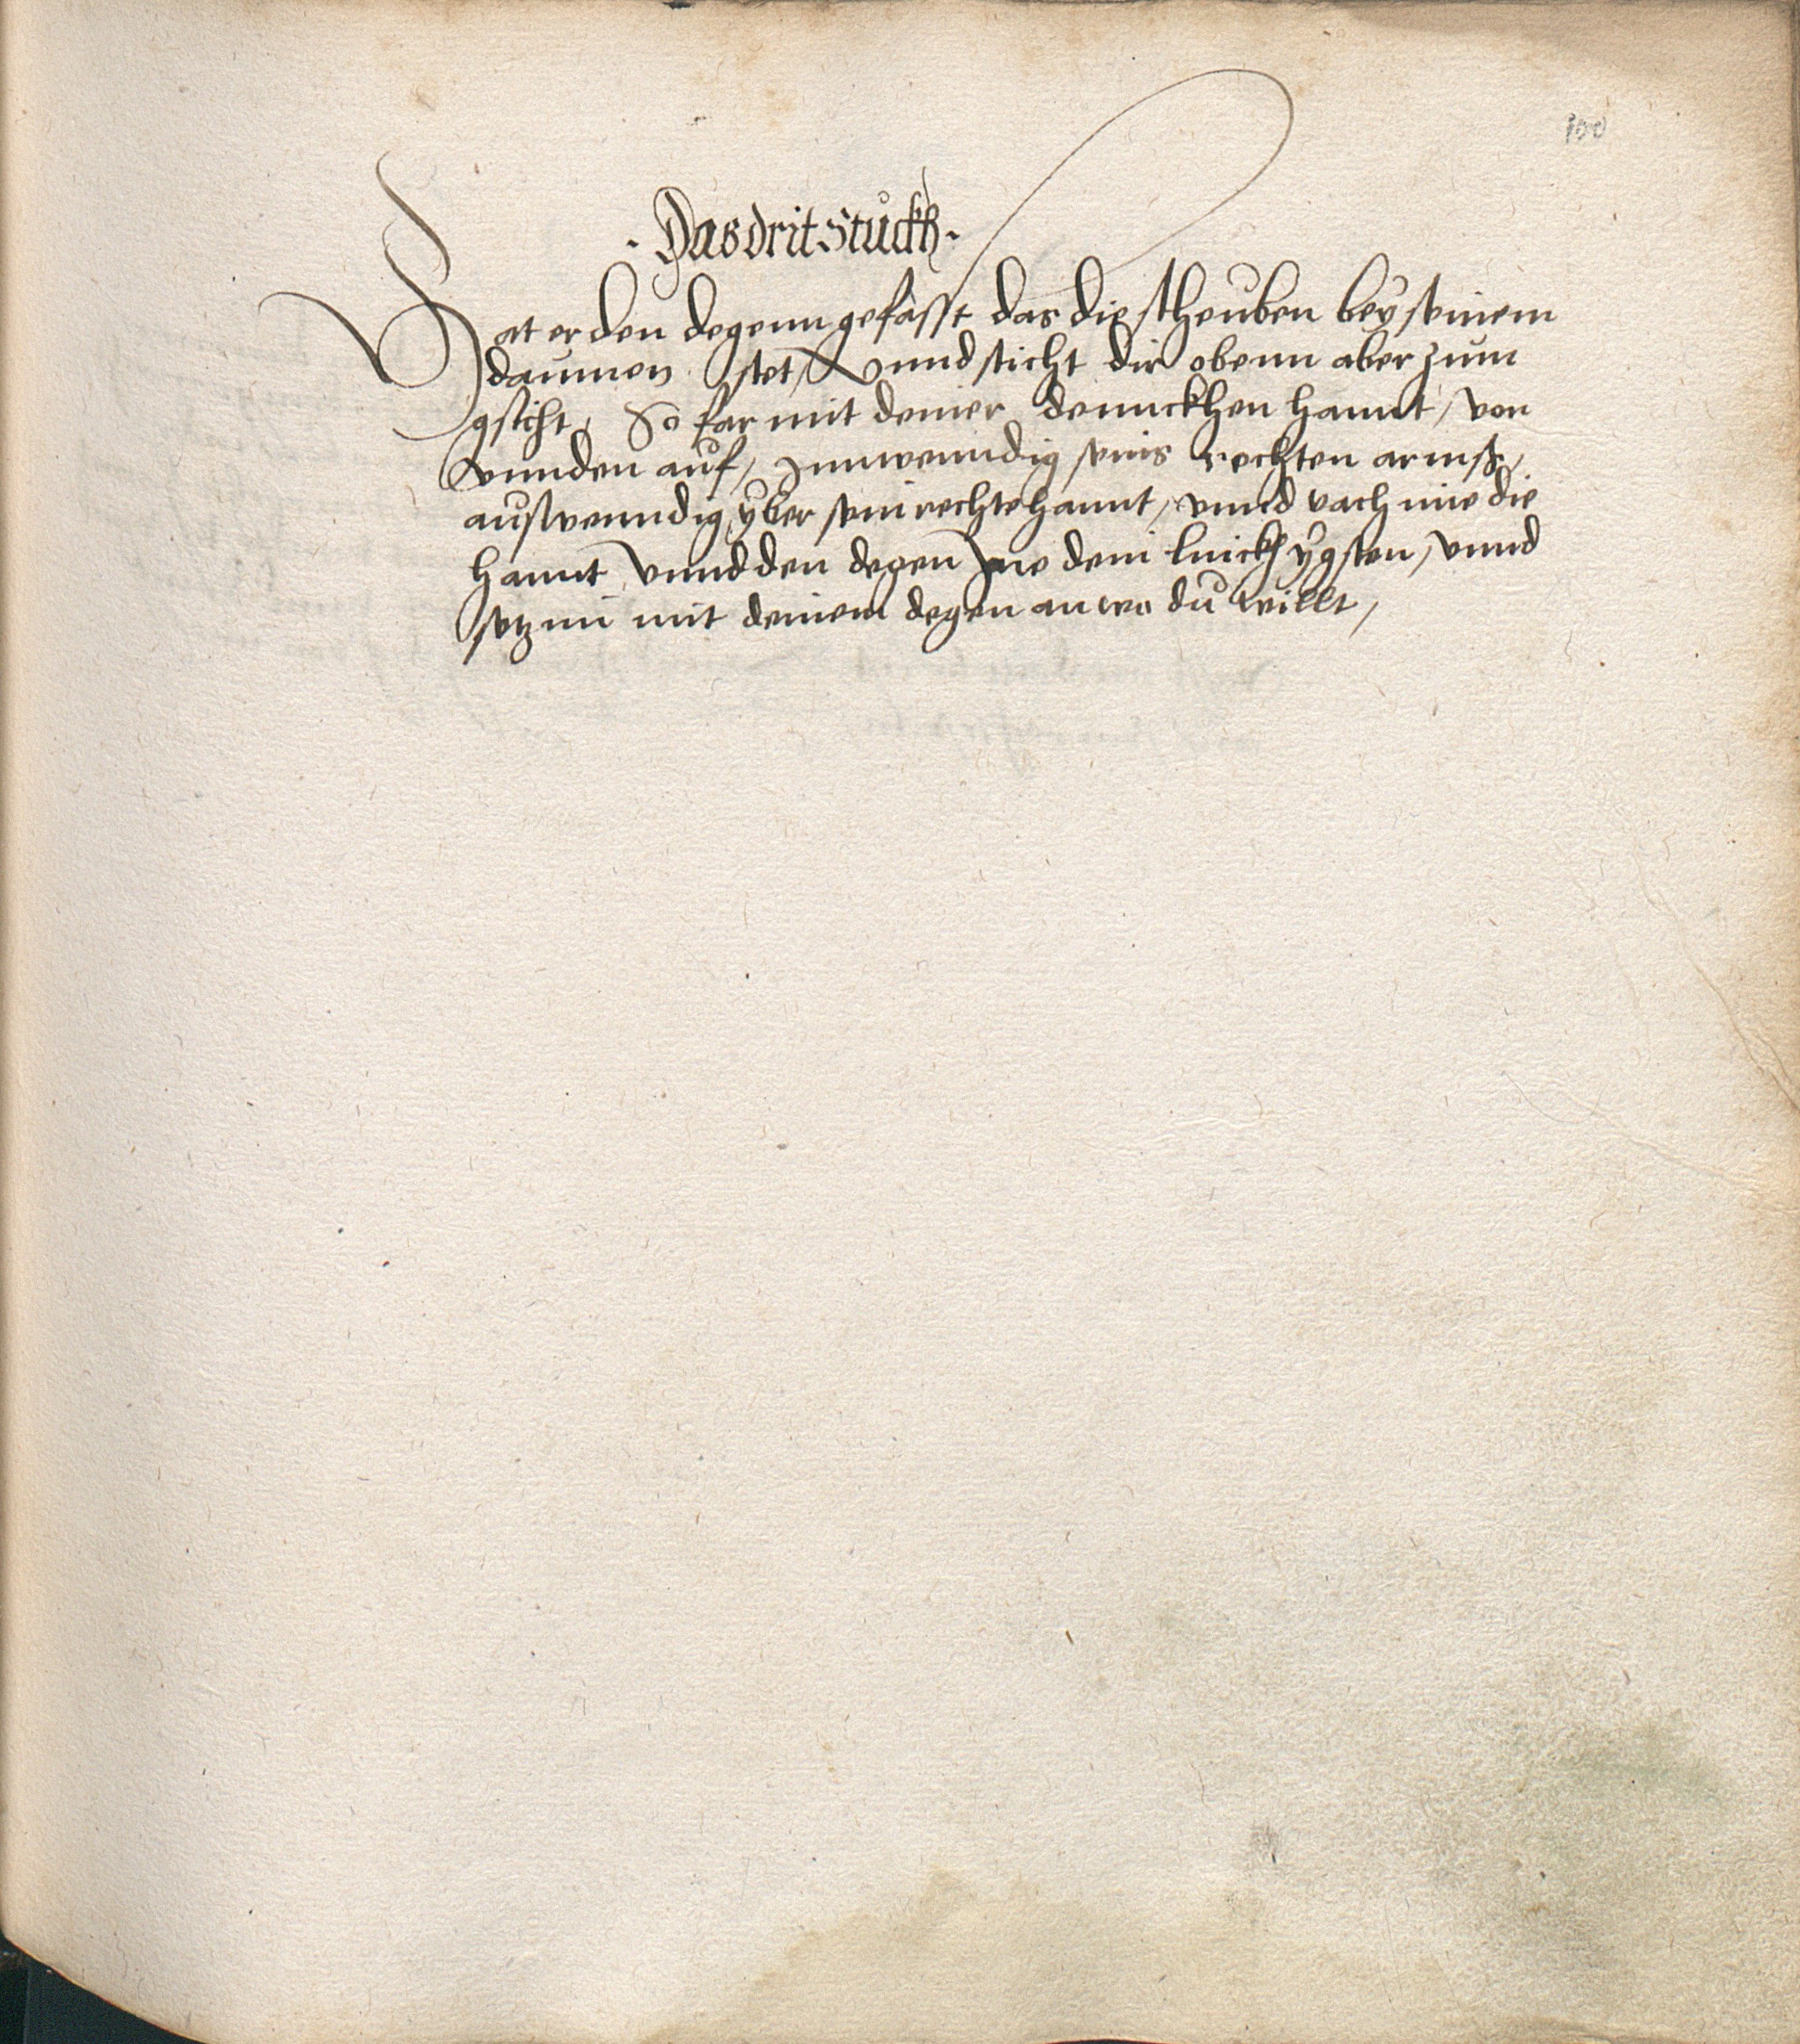 100
· Das drit Stuckh ·
Hat er den degenn gefasst das die scheuben bey seinem
daumen stet / Vnnd sticht dir obenn aber zum
gsicht, So far mit deiner dennckhen hannt / von
vnnden auf / Innwenndig seins rechten armß /
auswenndig yber sein rechte hannt / vnnd vach ime die
hannt vnnd den degen Inn dein linckh ygsen / vnnd
setz im mit deinem degen an wo du willt /